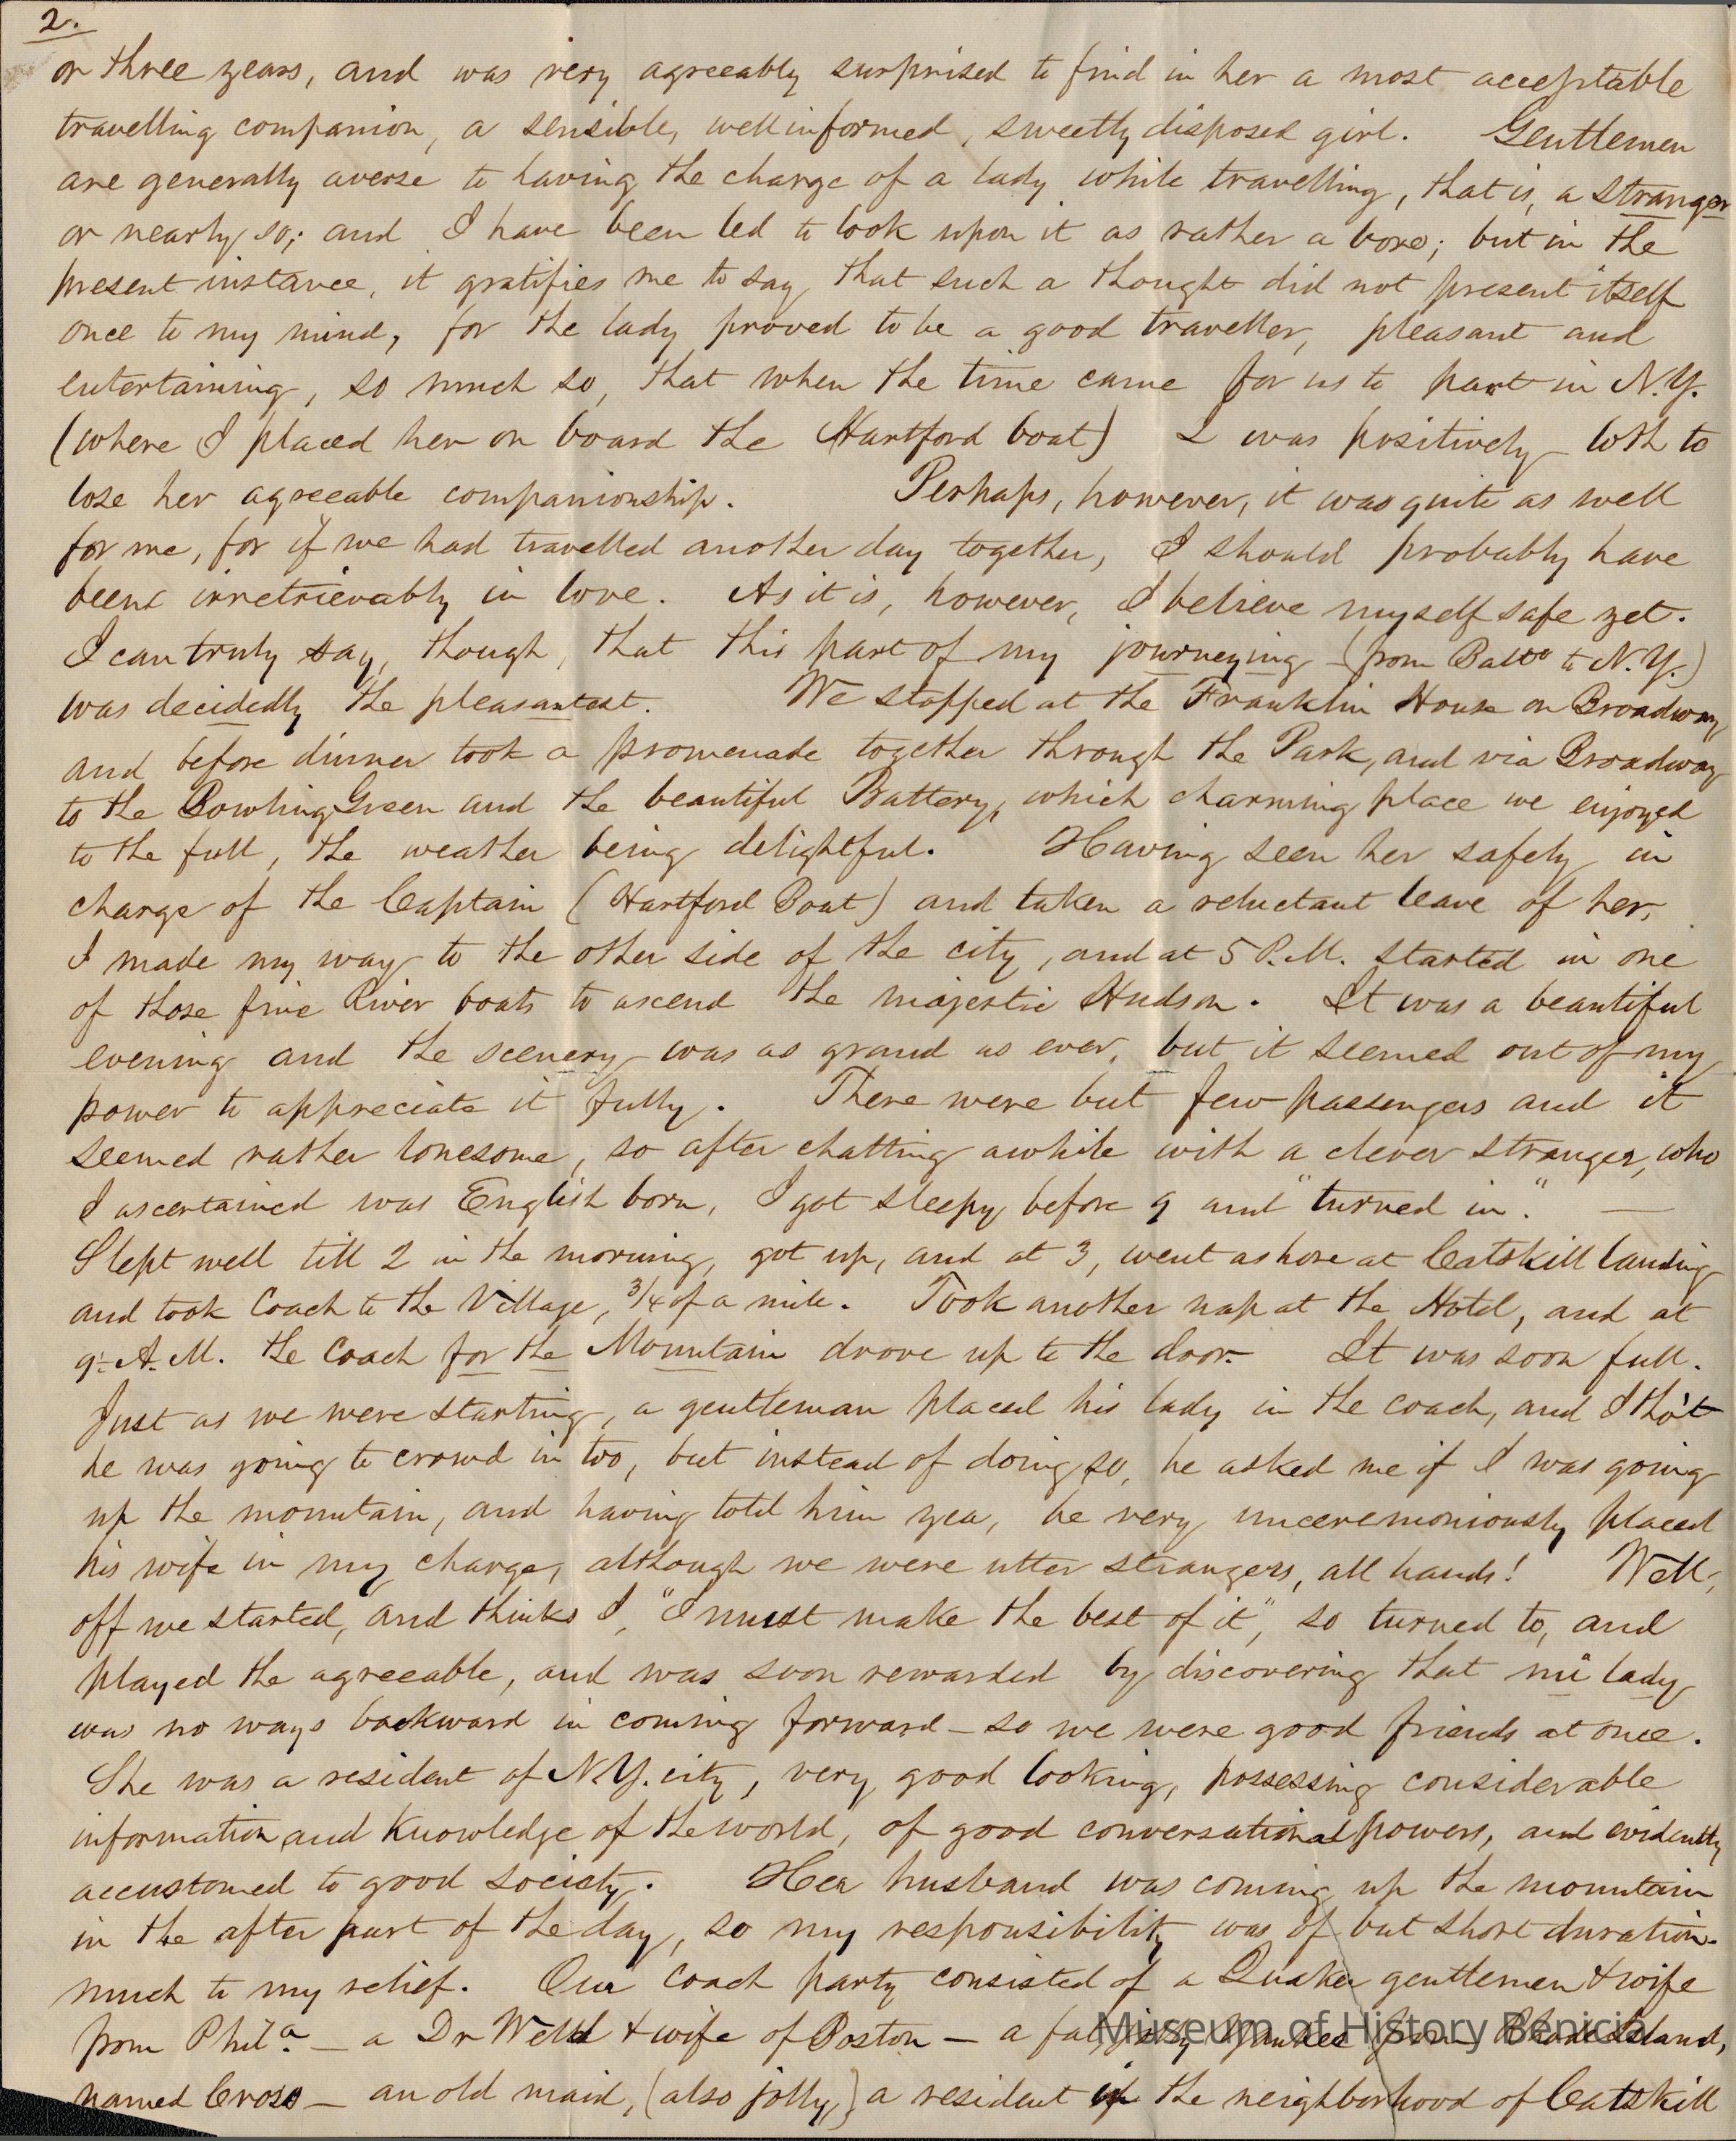 2.
or three years, and was very agreeably surprised to find in her a most acceptable
travelling companion, a sensible, well informed, sweetly disposed girl. Gentlemen
are generally averse to having the charge of a lady while travelling, that is, a stranger
or nearly so; and I have been led to look upon it as rather a bore; but in the
present instance, it gratifies me to say, that such a thought did not present itself
once to my mind, for the lady proved to be a good traveller, pleasant and
entertaining, so much so, that when the time came for us to part in N.Y.
(where I placed her on board the Hartford boat) I was positively loth to
lose her agreeable companionship. Perhaps, however, it was quite as well
for me, for if we had travelled another day together, I should probably have
been irretrievably in love. As it is, however, I believe myself safe yet.
I can truly say, though, that this part of my journeying (from Balto to N.Y.)
was decidedly the pleasantest. We stopped at the Franklin House on Broadway
and before dinner took a promenade together through the Park, and via Broadway
to the Bowling Green and the beautiful Battery, which charming place we enjoyed
to the full, the weather being delightful. Having seen her safely in
charge of the Captain (Hartford Boat) and taken a reluctant leave of her,
I made my way to the other side of the city, and at 5 P.M. started in one
of those fine River boats to ascend the majestic Hudson. It was a beautiful
evening and the scenery was as grand as ever, but it seemed out of my
power to appreciate it fully. There were but few passengers and it
seemed rather lonesome, so after chatting awhile with a clever stranger, who
I ascertained was English born, I got sleepy before 9 and "turned in." —
Slept well till 2 in the morning, got up, and at 3, went ashore at Catskill landing
and took Coach to the Village, 3/4 of a mile. Took another nap at the Hotel, and at
9 A.M. the Coach for the Mountain drove up to the door. It was soon full.
Just as we were starting, a gentleman placed his lady in the coach, and I tho't
he was going to crowd in too, but instead of doing so, he asked me if I was going
up the mountain, and having told him yea, he very unceremoniously placed
his wife in my charge, although we were utter strangers, all hands! Well,
off we started, and thinks I, "I must make the best of it", so turned to, and
played the agreeable, and was soon rewarded by discovering that mi lady
was no ways backward in coming forward – so we were good friends at once.
She was a resident of N.Y. city, very good looking, possessing considerable
information and knowledge of the world, of good conversational powers, and evidently
accustomed to good society. Her husband was coming up the mountain
in the after part of the day, so my responsibility was of but short duration.
much to my relief. Our Coach party consisted of a Quaker gentlemen & wife
from Phila. – a Dr Weld & wife of Boston – a fat, jolly Yankee from Rhode Island,
named Cross – an old maid, (also jolly,) a resident in the neighborhood of Catskill
Museum of History Benicia